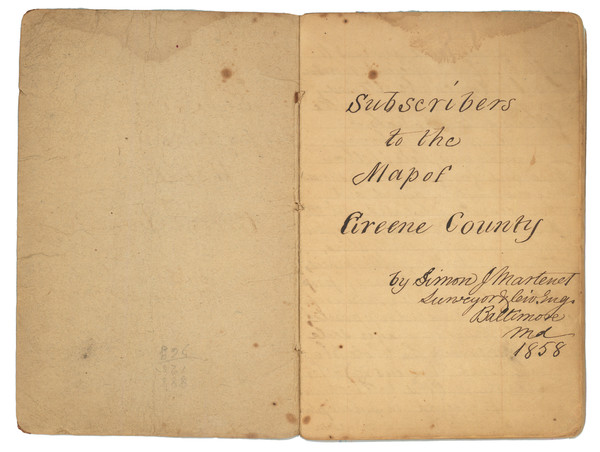 896
188
Subscribers
to the
Map of
Greene County
by Simon J Martenet
Surveyor & Civ. Eng.
Baltimore
Md
1858